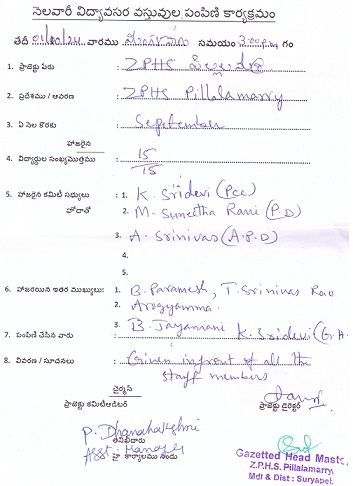 నెలవారీ విద్యావసర వస్తువుల పంపిణి కార్యక్రమం
తేది 01/10/24 వారము మంగళవారం సమయం 3:00 p.m గం
1. ప్రాజెక్టు పేరు : ZPHS పిల్లలమర్రి
2. ప్రదేశము / ఆవరణ : ZPHS Pillalamarry
3. ఏ నెల కొరకు : September
హాజరైన
4. విద్యార్థుల సంఖ్యమొత్తము : 15/15
5. హాజరైన కమిటి సభ్యులు : 1. K. Sridevi (Pcc)
హోదాతో 2. M. Suneetha Rani (P.D)
3. A. Srinivas (A.P.D)
4.
5.
6. హాజరయిన ఇతర ముఖ్యులు: 1. B. Paramesh, T. Srinivas Rao
2. Arogyamma
3. B. Jayamani K. Sridevi (G.A
7. పంపిణీ చేసిన వారు :
8. వివరణ / సూచనలు : Given infront of all the
staff members
ఛైర్మన్
ప్రాజెక్టు కమిటిఆడిటర్ ప్రాజెక్టు డైరెక్టర్
P. Dhanalakshmi
తనిఖీదారు
Asst. Manager
హై కార్యాలము నందు
Gazetted Head Maste
Z.P.H.S. Pillalamarry,
Mdl & Dist : Suryapet.